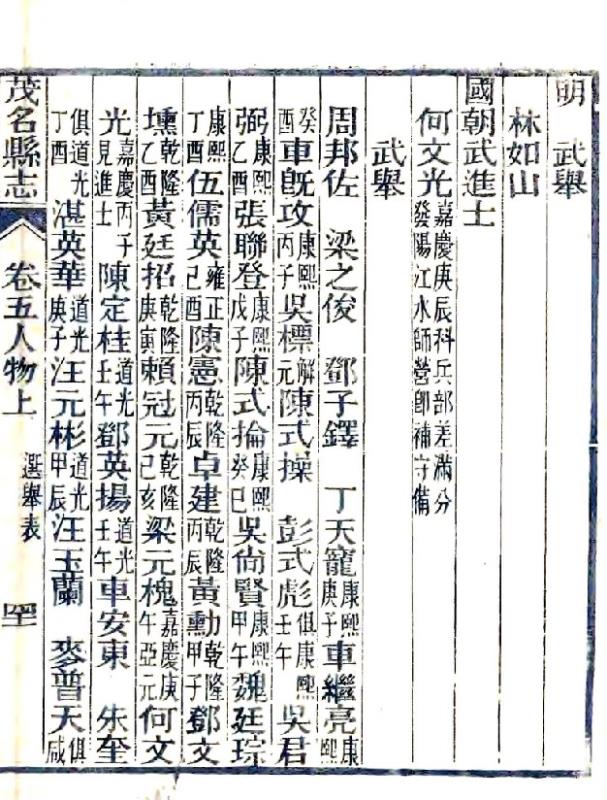 明 武舉
林如山
國朝武進士
何文光 嘉慶庚辰科兵部差滿分發陽江水師營卽補守備
武舉
周邦佐 梁之俊 鄧子鐸 丁天寵 康熙庚子 車繼亮 康熙
癸酉 車旣攻 康熙丙子 吳標 解元 陳式操 彭式彪 俱康熙壬午 吳君
弼 康熙乙酉 張聯登 康熙戊子 陳式掄 康熙癸巳 吳尙賢 康熙甲午 魏廷琮
康熙丁酉 伍儒英 雍正己酉 陳憲 乾隆丙辰 卓建 乾隆丙辰 黃勳 乾隆甲子 鄧文
壎 乾隆乙酉 黃廷招 乾隆庚寅 賴冠元 乾隆己亥 梁元槐 嘉慶庚午亞元 何文
光 嘉慶丙子見進士 陳定桂 道光壬午 鄧英揚 道光壬午 車安東 朱奎
俱道光丁酉 湛英華 道光庚子 汪元彬 道光甲辰 汪玉蘭 麥普天 俱咸
茂名縣志 卷五人物上 選舉表